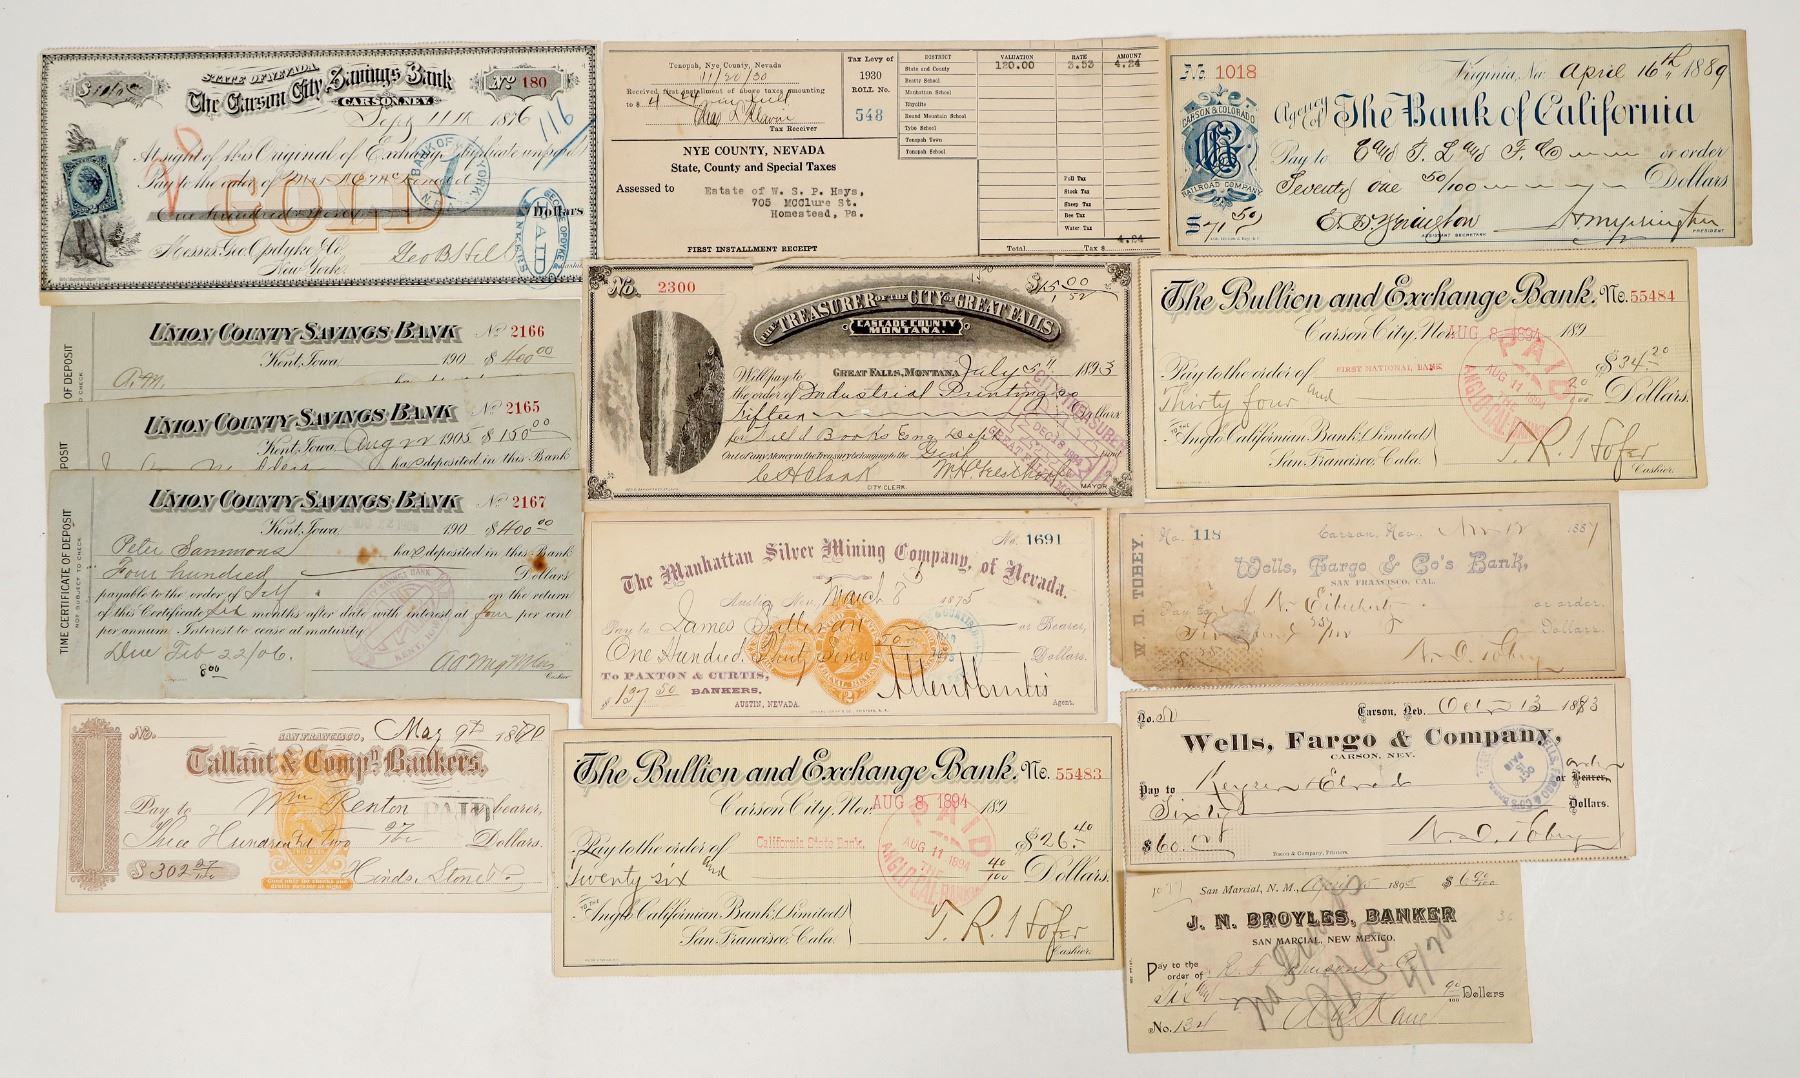 STATE OF NEVADA.
The Carson City Savings Bank
No 180
CARSON, NEV.
Sept 11th 1876
At sight of this Original of Exchange (Duplicate unpaid)
Pay to the order of
One hundred
Dollars
GOLD
Messrs. Geo. Opdyke & Co.
New York.
Geo B Hill
GEORGE OPDYKE &
PAID
BANKERS
Tonopah, Nye County, Nevada
11/20/30
Received first installment of above taxes amounting
to $ 4
Tax Receiver
Tax Levy of
1930
ROLL No.
548
DISTRICT VALUATION RATE AMOUNT
State and County 120.00 3.53 4.24
Beatty School
Manhattan School
Rhyolite
Round Mountain School
Tybo School
Tonopah Town
Tonopah School
Poll Tax
Stock Tax
Sheep Tax
Bee Tax
Water Tax
Total Tax $ 4.24
NYE COUNTY, NEVADA
State, County and Special Taxes
Assessed to
Estate of W. S. P. Hays,
705 McClure St.
Homestead, Pa.
FIRST INSTALLMENT RECEIPT
No 1018
Virginia, Nev. April 16th 1889
CARSON & COLORADO
RAILROAD COMPANY
Agency of The Bank of California
Pay to or order
Seventy one 50/100 Dollars
$ 71 50/
E. B. Yerington
ASSISTANT SECRETARY
H M Yerington
PRESIDENT
UNION COUNTY SAVINGS BANK No 2166
Kent, Iowa, 190 $400.00
OF DEPOSIT
TO CHECK
UNION COUNTY SAVINGS BANK No 2165
Kent, Iowa Aug 22 1905 $150.00
has deposited in this Bank
POSIT
CHECK
UNION COUNTY SAVINGS BANK No 2167
Kent, Iowa, 190 $400.00
Peter Sammons has deposited in this Bank
Four hundred Dollars
payable to the order of Self on the return
of this Certificate six months after date with interest at four per cent
per annum. Interest to cease at maturity
Due Feb 22/06.
8.00
Cashier
TIME CERTIFICATE OF DEPOSIT
NOT SUBJECT TO CHECK
No. 2300
$15.00
THE TREASURER OF THE CITY OF GREAT FALLS
CASCADE COUNTY
MONTANA.
GREAT FALLS, MONTANA July 5th 1893
Will pay to
the order of Industrial Printing Co
Fifteen Dollars
for Field Books Eng Dept
Out of any Money in the Treasury belonging to the Genl fund
C H Clark
CITY CLERK.
MAYOR
CITY TREASURER
DEC 18 1894
GREAT FALLS, MONT
The Bullion and Exchange Bank. No. 55484
Carson City, Nev. AUG 8 1894 189
Pay to the order of FIRST NATIONAL BANK $34.20
Thirty four and 20/100 Dollars.
TO THE Anglo Californian Bank (Limited)
San Francisco, Cala.
T. R. Hofer
Cashier.
PAID
AUG 11 1894
THE
ANGLO CAL. BANK
The Manhattan Silver Mining Company, of Nevada.
No. 1691
Austin, Nev. March 8 1875
Pay to James Sullivan or Bearer,
One Hundred Thirty Seven 50/100 Dollars.
To PAXTON & CURTIS,
BANKERS.
$137.50
AUSTIN, NEVADA.
Allen A Curtis
Agent.
W. D. TOBEY.
No. 118
Carson, Nev., Nov 12 1887
Wells, Fargo & Co's Bank,
SAN FRANCISCO, CAL.
Pay to or order.
Dollars.
W. D. Tobey
No.
SAN FRANCISCO, May 9th 1870
Tallant & Compy. Bankers.
Pay to Wm Renton or bearer,
Three Hundred & two 97/100 Dollars.
$ 302 97/100
PAID
Good only for checks and
drafts payable at sight.
Hinds, Stone & Co
The Bullion and Exchange Bank. No. 55483
Carson City, Nev. AUG 8 1894 189
Pay to the order of California State Bank, $26.40
Twenty six and 40/100 Dollars.
TO THE Anglo Californian Bank (Limited)
San Francisco, Cala.
T. R. Hofer
Cashier.
PAID
AUG 11 1894
THE
ANGLO CAL. BANK
No.
Carson, Nev. Oct 13 1883
Wells, Fargo & Company,
CARSON, NEV.
Pay to Keyser & Elrod or Bearer, order
Sixty Dollars.
$60.00/100
W. D. Tobey
San Marcial, N. M., April 5 1895 $ 6 90/100
J. N. BROYLES, BANKER
SAN MARCIAL, NEW MEXICO.
Pay to the
order of
Six and 90/100 Dollars
No. 134